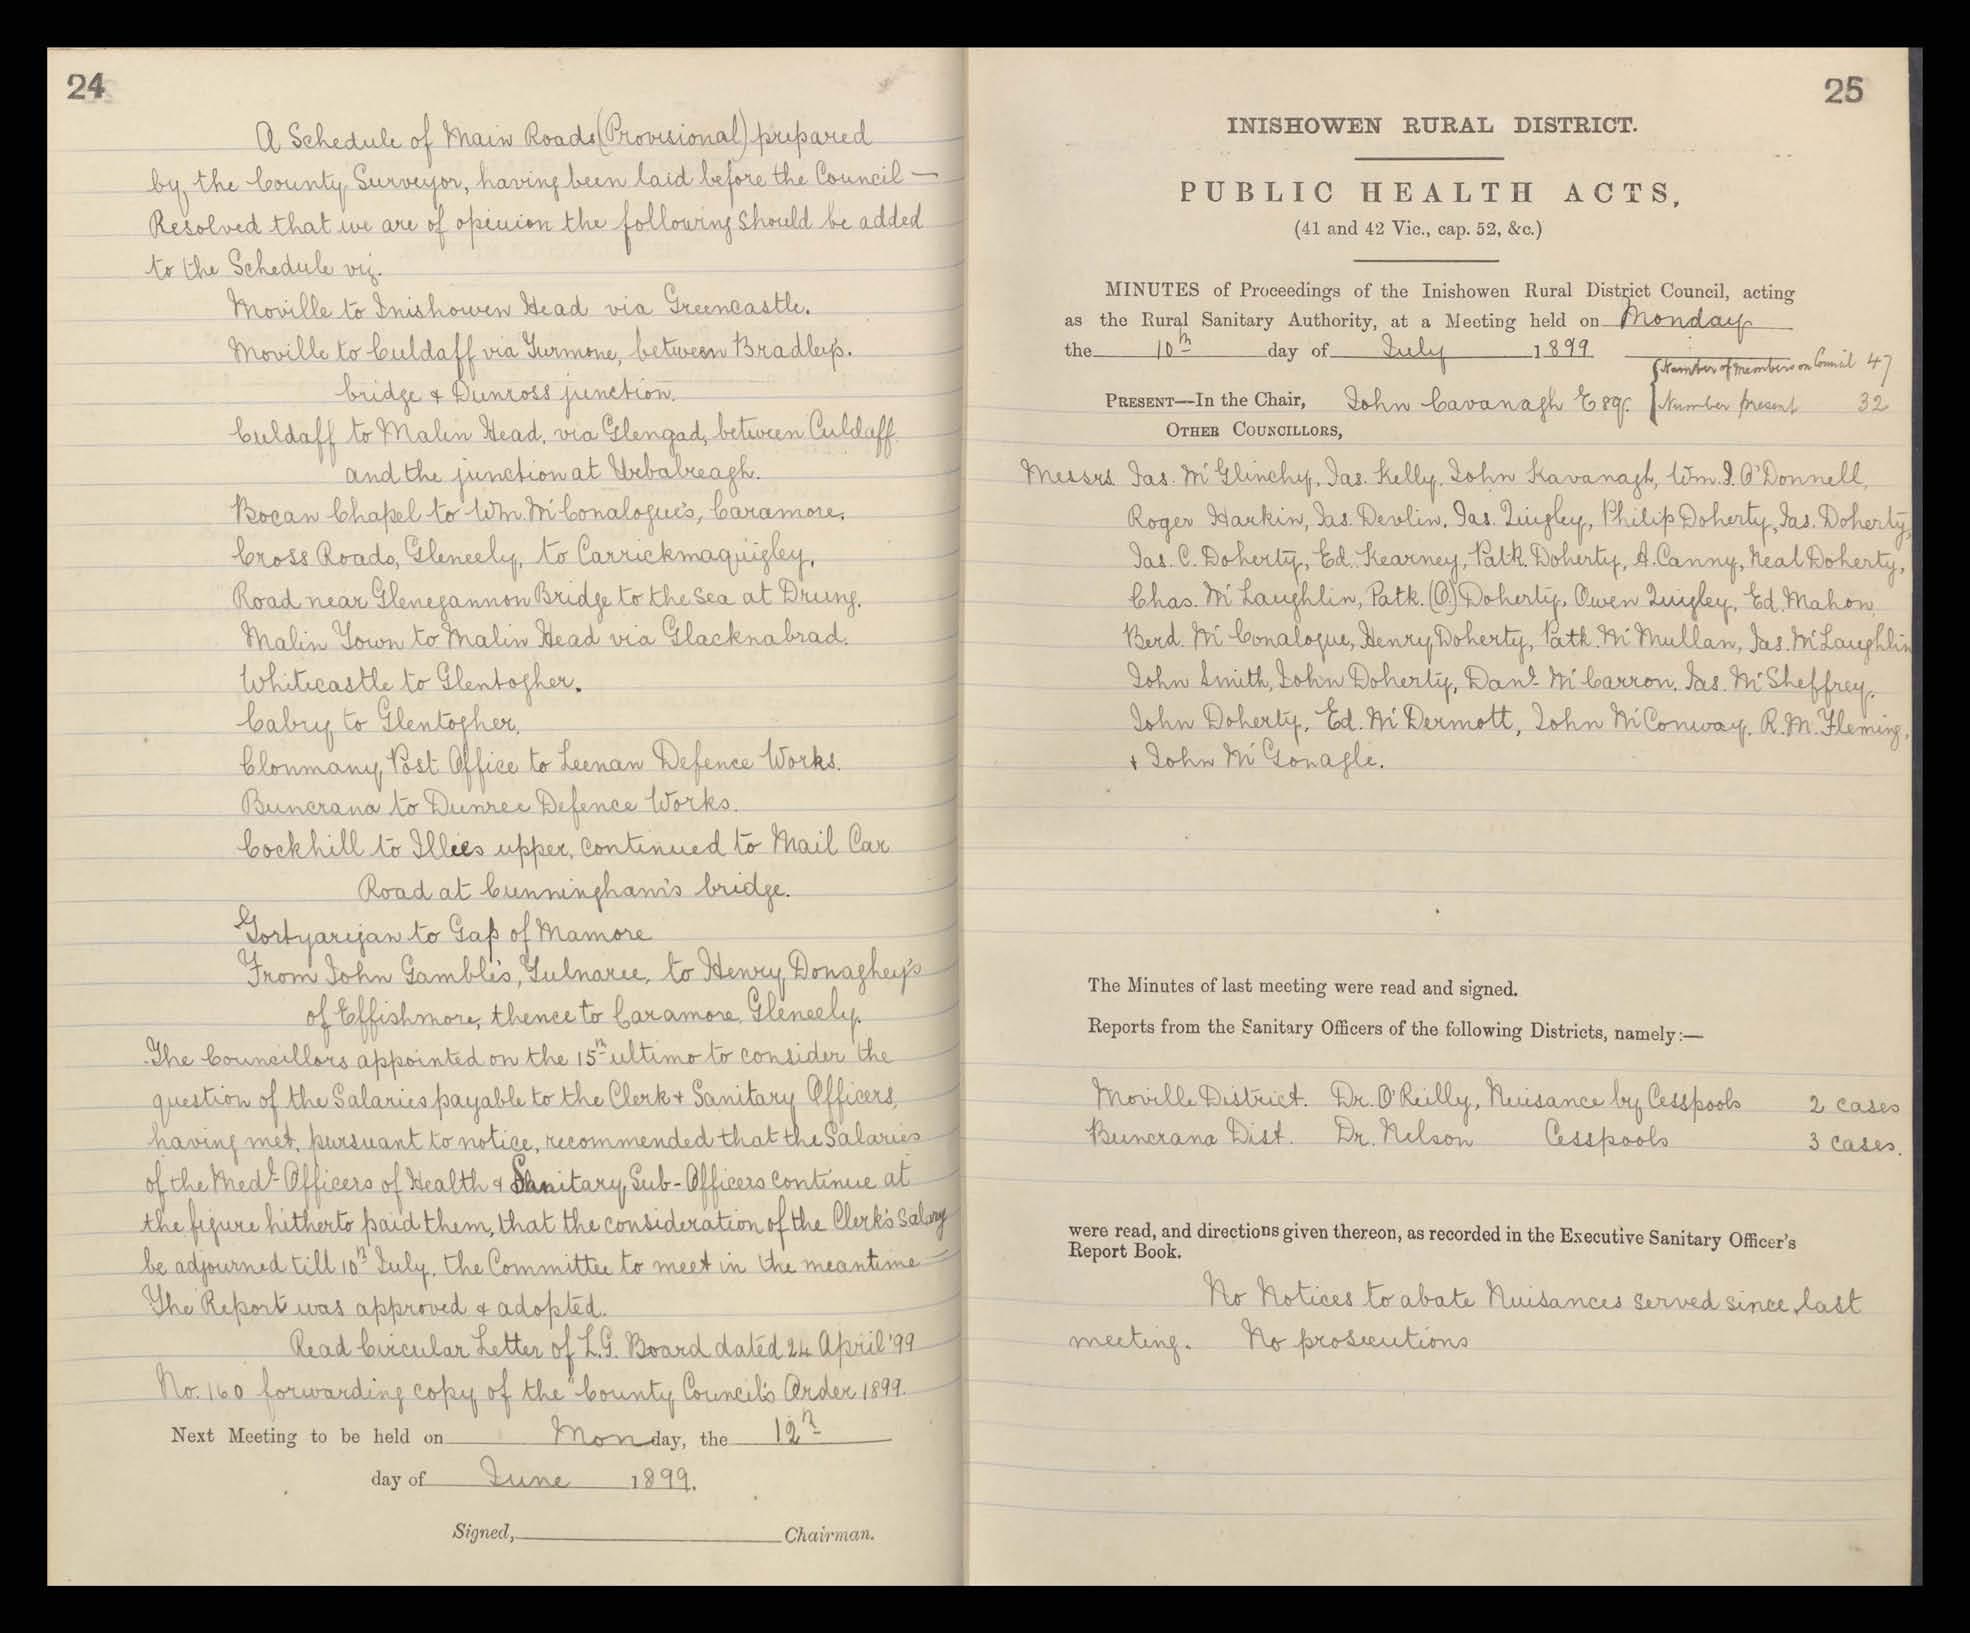 24
A Schedule of Main Roads (Provisional) prepared
by the County Surveyor, having been laid before the Council —
Resolved that we are of opinion the following should be added
to the Schedule viz.
Moville to Inishowen Head via Greencastle.
Moville to Culdaff via Turmone, between Bradley's.
bridge & Dunross junction.
Culdaff to Malin Head, via Glengad, between Culdaff
and the junction at Urbalreagh.
Bocan Chapel to Wm. McConalogue's, Caramore.
Cross Roads, Gleneely, to Carrickmaquigley.
Road near Glenegannon Bridge to the sea at Drung.
Malin Town to Malin Head via Glacknabrad.
Whitecastle to Glentogher.
Cabry to Glentogher.
Clonmany Post Office to Leenan Defence Works.
Buncrana to Dunree Defence Works.
Cockhill to Illies upper, continued to Mail Car
Road at Cunningham's bridge.
Gortyarigan to Gap of Mamore
From John Gamble's, Tulnaree, to Henry Donaghey's
of Effishmore, thence to Caramore, Gleneely.
The Councillors appointed on the 15th ultimo to consider the
question of the Salaries payable to the Clerk & Sanitary Officers,
having met, pursuant to notice, recommended that the Salaries
of the Medl. Officers of Health & Sanitary Sub-Officers continue at
the figure hitherto paid them, that the consideration of the Clerk's Salary
be adjourned till 10th July, the Committee to meet in the meantime —
The Report was approved & adopted.
Read Circular Letter of L.G. Board dated 24 April '99
No. 160 forwarding copy of the "County Councils Order 1899.
Next Meeting to be held on Monday, the 12th
day of June 1899.
Signed, Chairman.
25
INISHOWEN RURAL DISTRICT.
PUBLIC HEALTH ACTS,
(41 and 42 Vic., cap. 52, &c.)
MINUTES of Proceedings of the Inishowen Rural District Council, acting
as the Rural Sanitary Authority, at a Meeting held on Monday
the 10th day of July 1899
Number of members on Council 47
PRESENT—In the Chair, John Cavanagh Esqr. Number present 32
OTHER COUNCILLORS,
Messrs Jas. McGlinchy, Jas. Kelly, John Kavanagh, Wm. J. O'Donnell,
Roger Harkin, Jas. Devlin, Jas. Quigley, Philip Doherty, Jas. Doherty,
Jas. C. Doherty, Ed. Kearney, Patk. Doherty, A. Canny, Neal Doherty,
Chas. McLaughlin, Patk. (O) Doherty, Owen Quigley, Ed. Mahon,
Berd. McConalogue, Henry Doherty, Patk. McMullan, Jas. McLaughlin
John Smith, John Doherty, Danl. McCarron, Jas. McSheffrey,
John Doherty, Ed. McDermott, John McConway, R.M. Fleming,
& John McGonagle.
The Minutes of last meeting were read and signed.
Reports from the Sanitary Officers of the following Districts, namely:—
Moville District. Dr. O'Reilly, Nuisance by Cesspools 2 cases
Buncrana Dist. Dr. Nelson Cesspools 3 cases.
were read, and directions given thereon, as recorded in the Executive Sanitary Officer's
Report Book.
No Notices to abate Nuisances served since last
meeting. No prosecutions